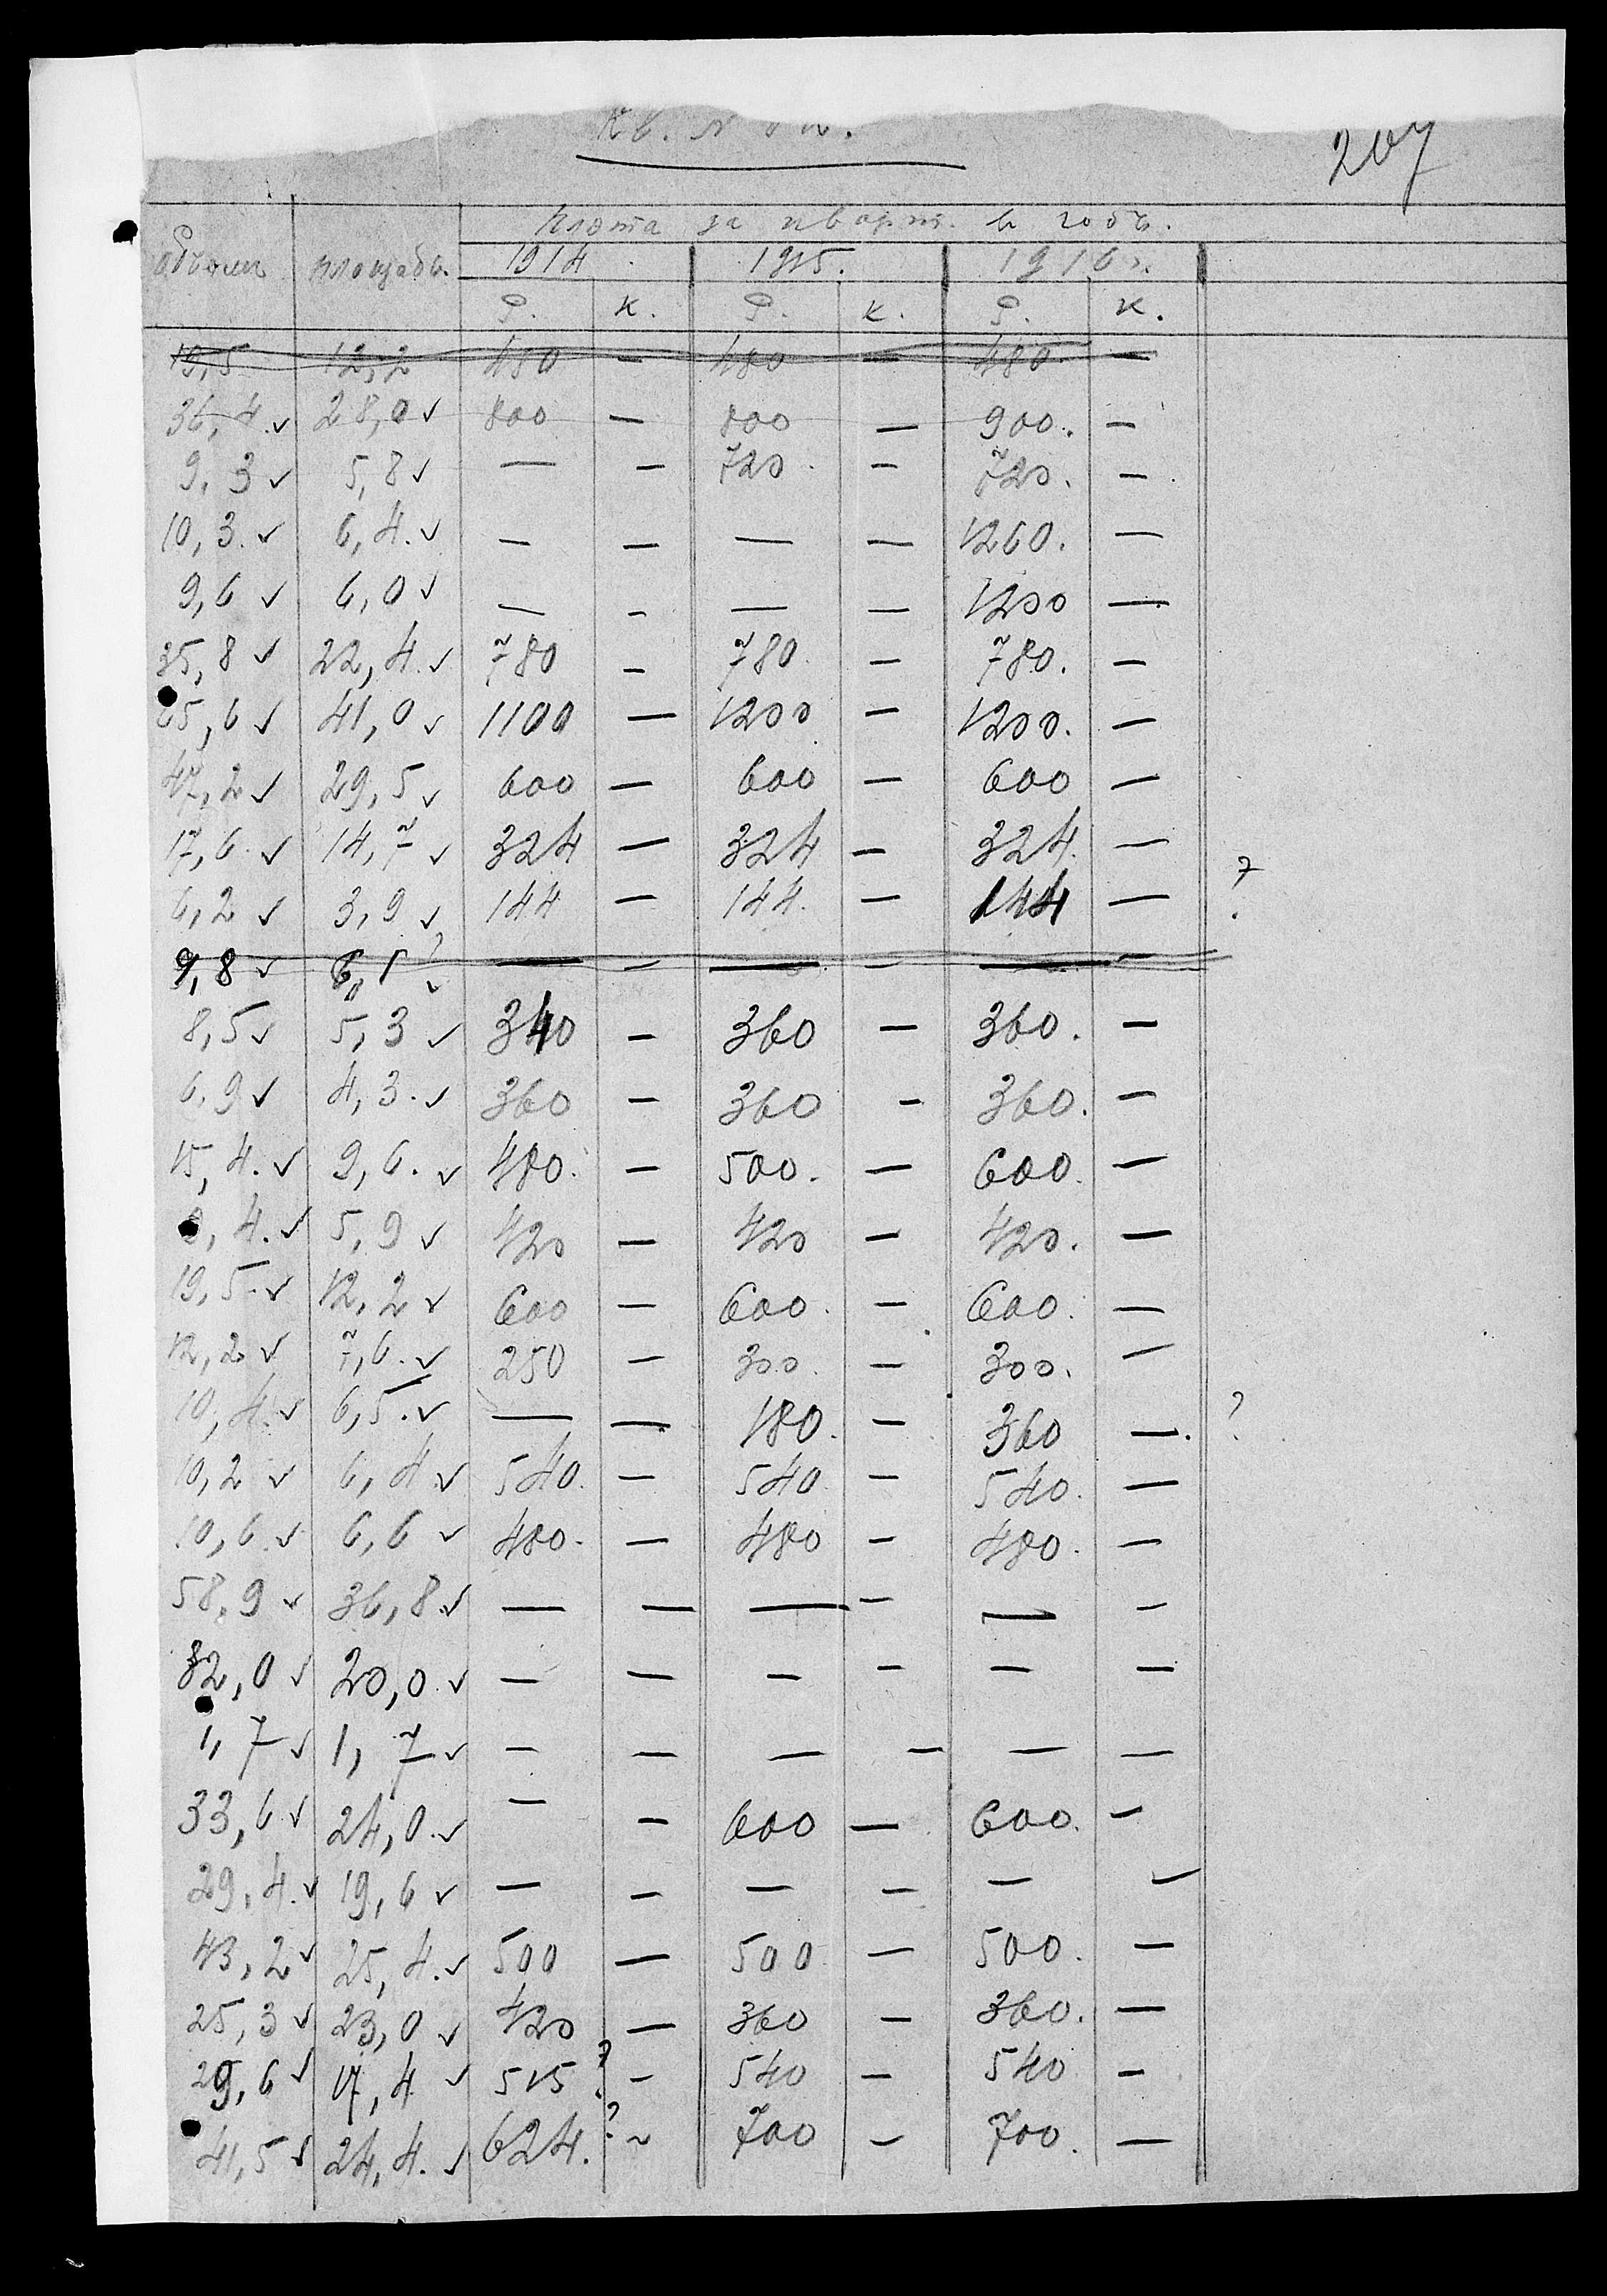 207
Плата за кварт. в годъ.
Объем площадь. 1914 1915. 1916 г.
Р. К. Р. К. Р. К.
19,5 12,2 480 — 480 — 480 —
36,4 ✓ 28,0 ✓ 800 — 800 — 900. —
9,3 ✓ 5,8 ✓ — — 720. — 720. —
10,3. ✓ 6,4. ✓ — — — — 1260. —
9,6 ✓ 6,0 ✓ — — — — 1200 —
35,8 ✓ 22,4. ✓ 780 — 780. — 780. —
65,6 ✓ 41,0 ✓ 1100 — 1200 — 1200. —
47,2 ✓ 29,5 ✓ 600 — 600 — 600 —
17,6. ✓ 14,7 ✓ 324 — 324 — 324. —
6,2 ✓ 3,9 ✓ 144 — 144. — 144 — ?
9,8 ✓ 6,1 ? ✓ — — — — — —
8,5 ✓ 5,3 ✓ 340 — 360 — 360. —
6,9 ✓ 4,3. ✓ 360 — 360 — 360. —
15,4. ✓ 9,6. ✓ 480. — 500. — 600. —
9,4. ✓ 5,9 ✓ 420 — 420 — 420. —
19,5. ✓ 12,2 ✓ 600 — 600. — 600. —
12,2 ✓ 7,6. ✓ 250 — 300. — 300. —
10,4. ✓ 6,5. ✓ — — 180. — 360 —. ?
10,2 ✓ 6,4 ✓ 540. — 540. — 540. —
10,6. ✓ 6,6 ✓ 480. — 480 — 480. —
58,9 ✓ 36,8 ✓ — — — — — —
32,0 ✓ 20,0. ✓ — — — — — —
1,7 ✓ 1,7 ✓ — — — — — —
33,6 ✓ 24,0. ✓ — — 600 — 600. —
29,4. ✓ 19,6 ✓ — — — — — —
43,2 ✓ 25,4. ✓ 500 — 500 — 500. —
25,3 ✓ 23,0 ✓ 420 — 360 — 360. —
29,6 ✓ 17,4 ✓ 515 ? — 540 — 540 —
41,5 ✓ 24,4. ✓ 624. ? — 700 — 700. —